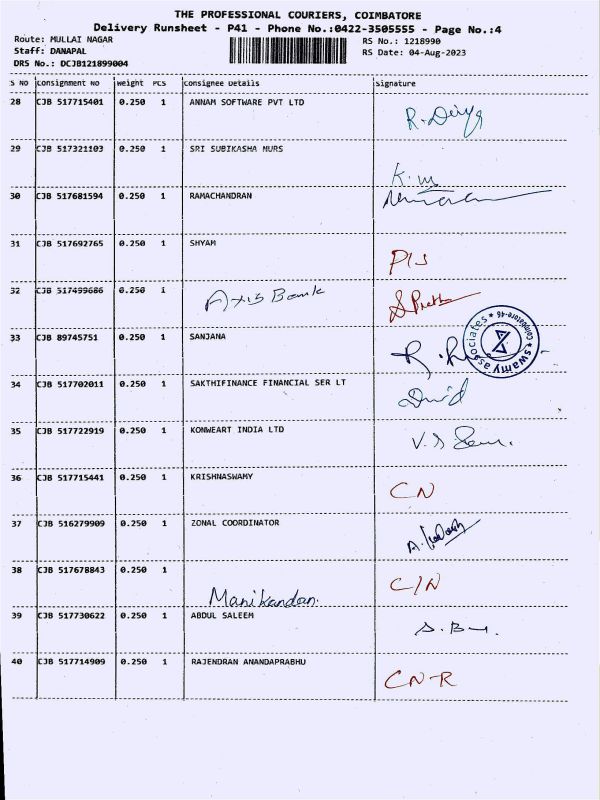 THE PROFESSIONAL COURIERS, COIMBATORE
Delivery Runsheet - P41 - Phone No.:0422-3505555 - Page No.:4
Route: MULLAI NAGAR RS No.: 1218990
Staff: DANAPAL RS Date: 04-Aug-2023
DRS No.: DCJB121899004
S NO Consignment NO Weight PCS Consignee Details Signature
28 CJB 517715401 0.250 1 ANNAM SOFTWARE PVT LTD
29 CJB 517321103 0.250 1 SRI SUBIKASHA NURS
K.M
30 CJB 517681594 0.250 1 RAMACHANDRAN
31 CJB 517692765 0.250 1 SHYAM
P/S
32 CJB 517499686 0.250 1 Axis Bank
33 CJB 89745751 0.250 1 SANJANA
swamy associates * Coimbatore-46 *
34 CJB 517702011 0.250 1 SAKTHIFINANCE FINANCIAL SER LT
35 CJB 517722919 0.250 1 KONWEART INDIA LTD
36 CJB 517715441 0.250 1 KRISHNASWAMY
CN
37 CJB 516279909 0.250 1 ZONAL COORDINATOR
38 CJB 517678843 0.250 1 Manikandan. C/N
39 CJB 517730622 0.250 1 ABDUL SALEEM
40 CJB 517714909 0.250 1 RAJENDRAN ANANDAPRABHU
CN-R